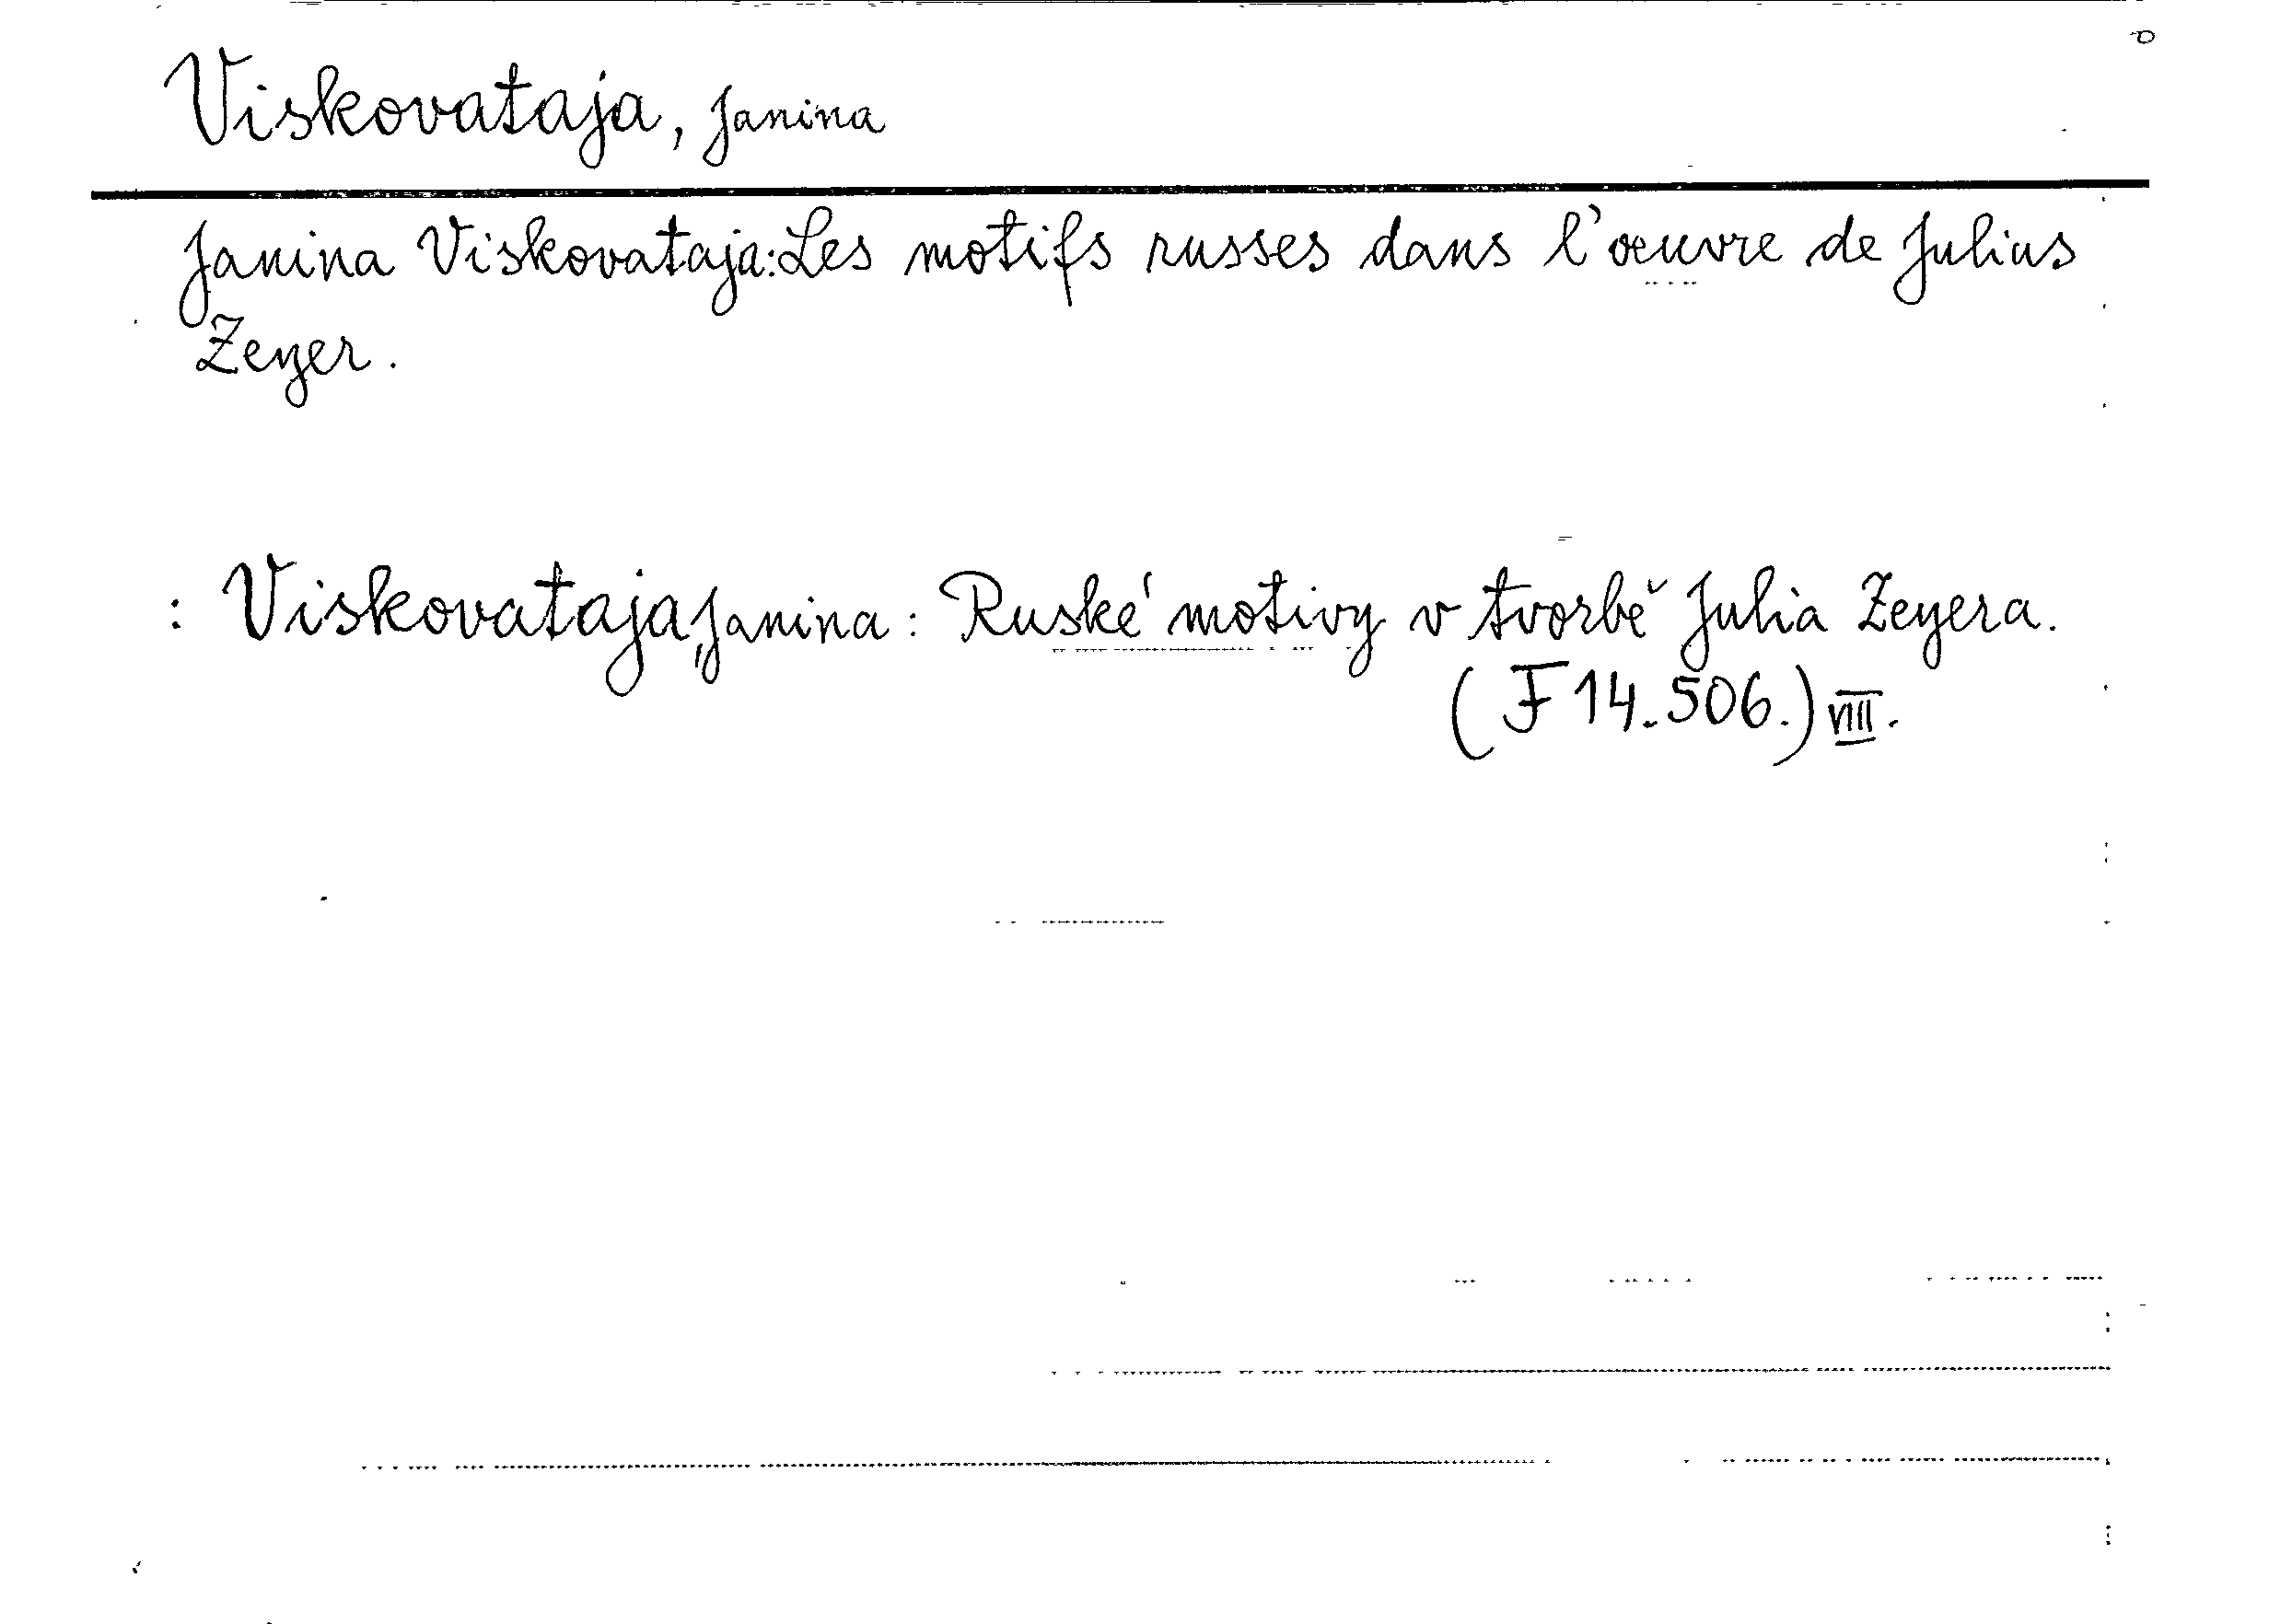 Viskovataja, Janina
Janina Viskovataja: Les motifs russes dans l'œuvre de Julius
Zeyer.
: Viskovataja, Janina: Ruské motivy v tvorbě Julia Zeyera.
(F 14.506.) VIII.